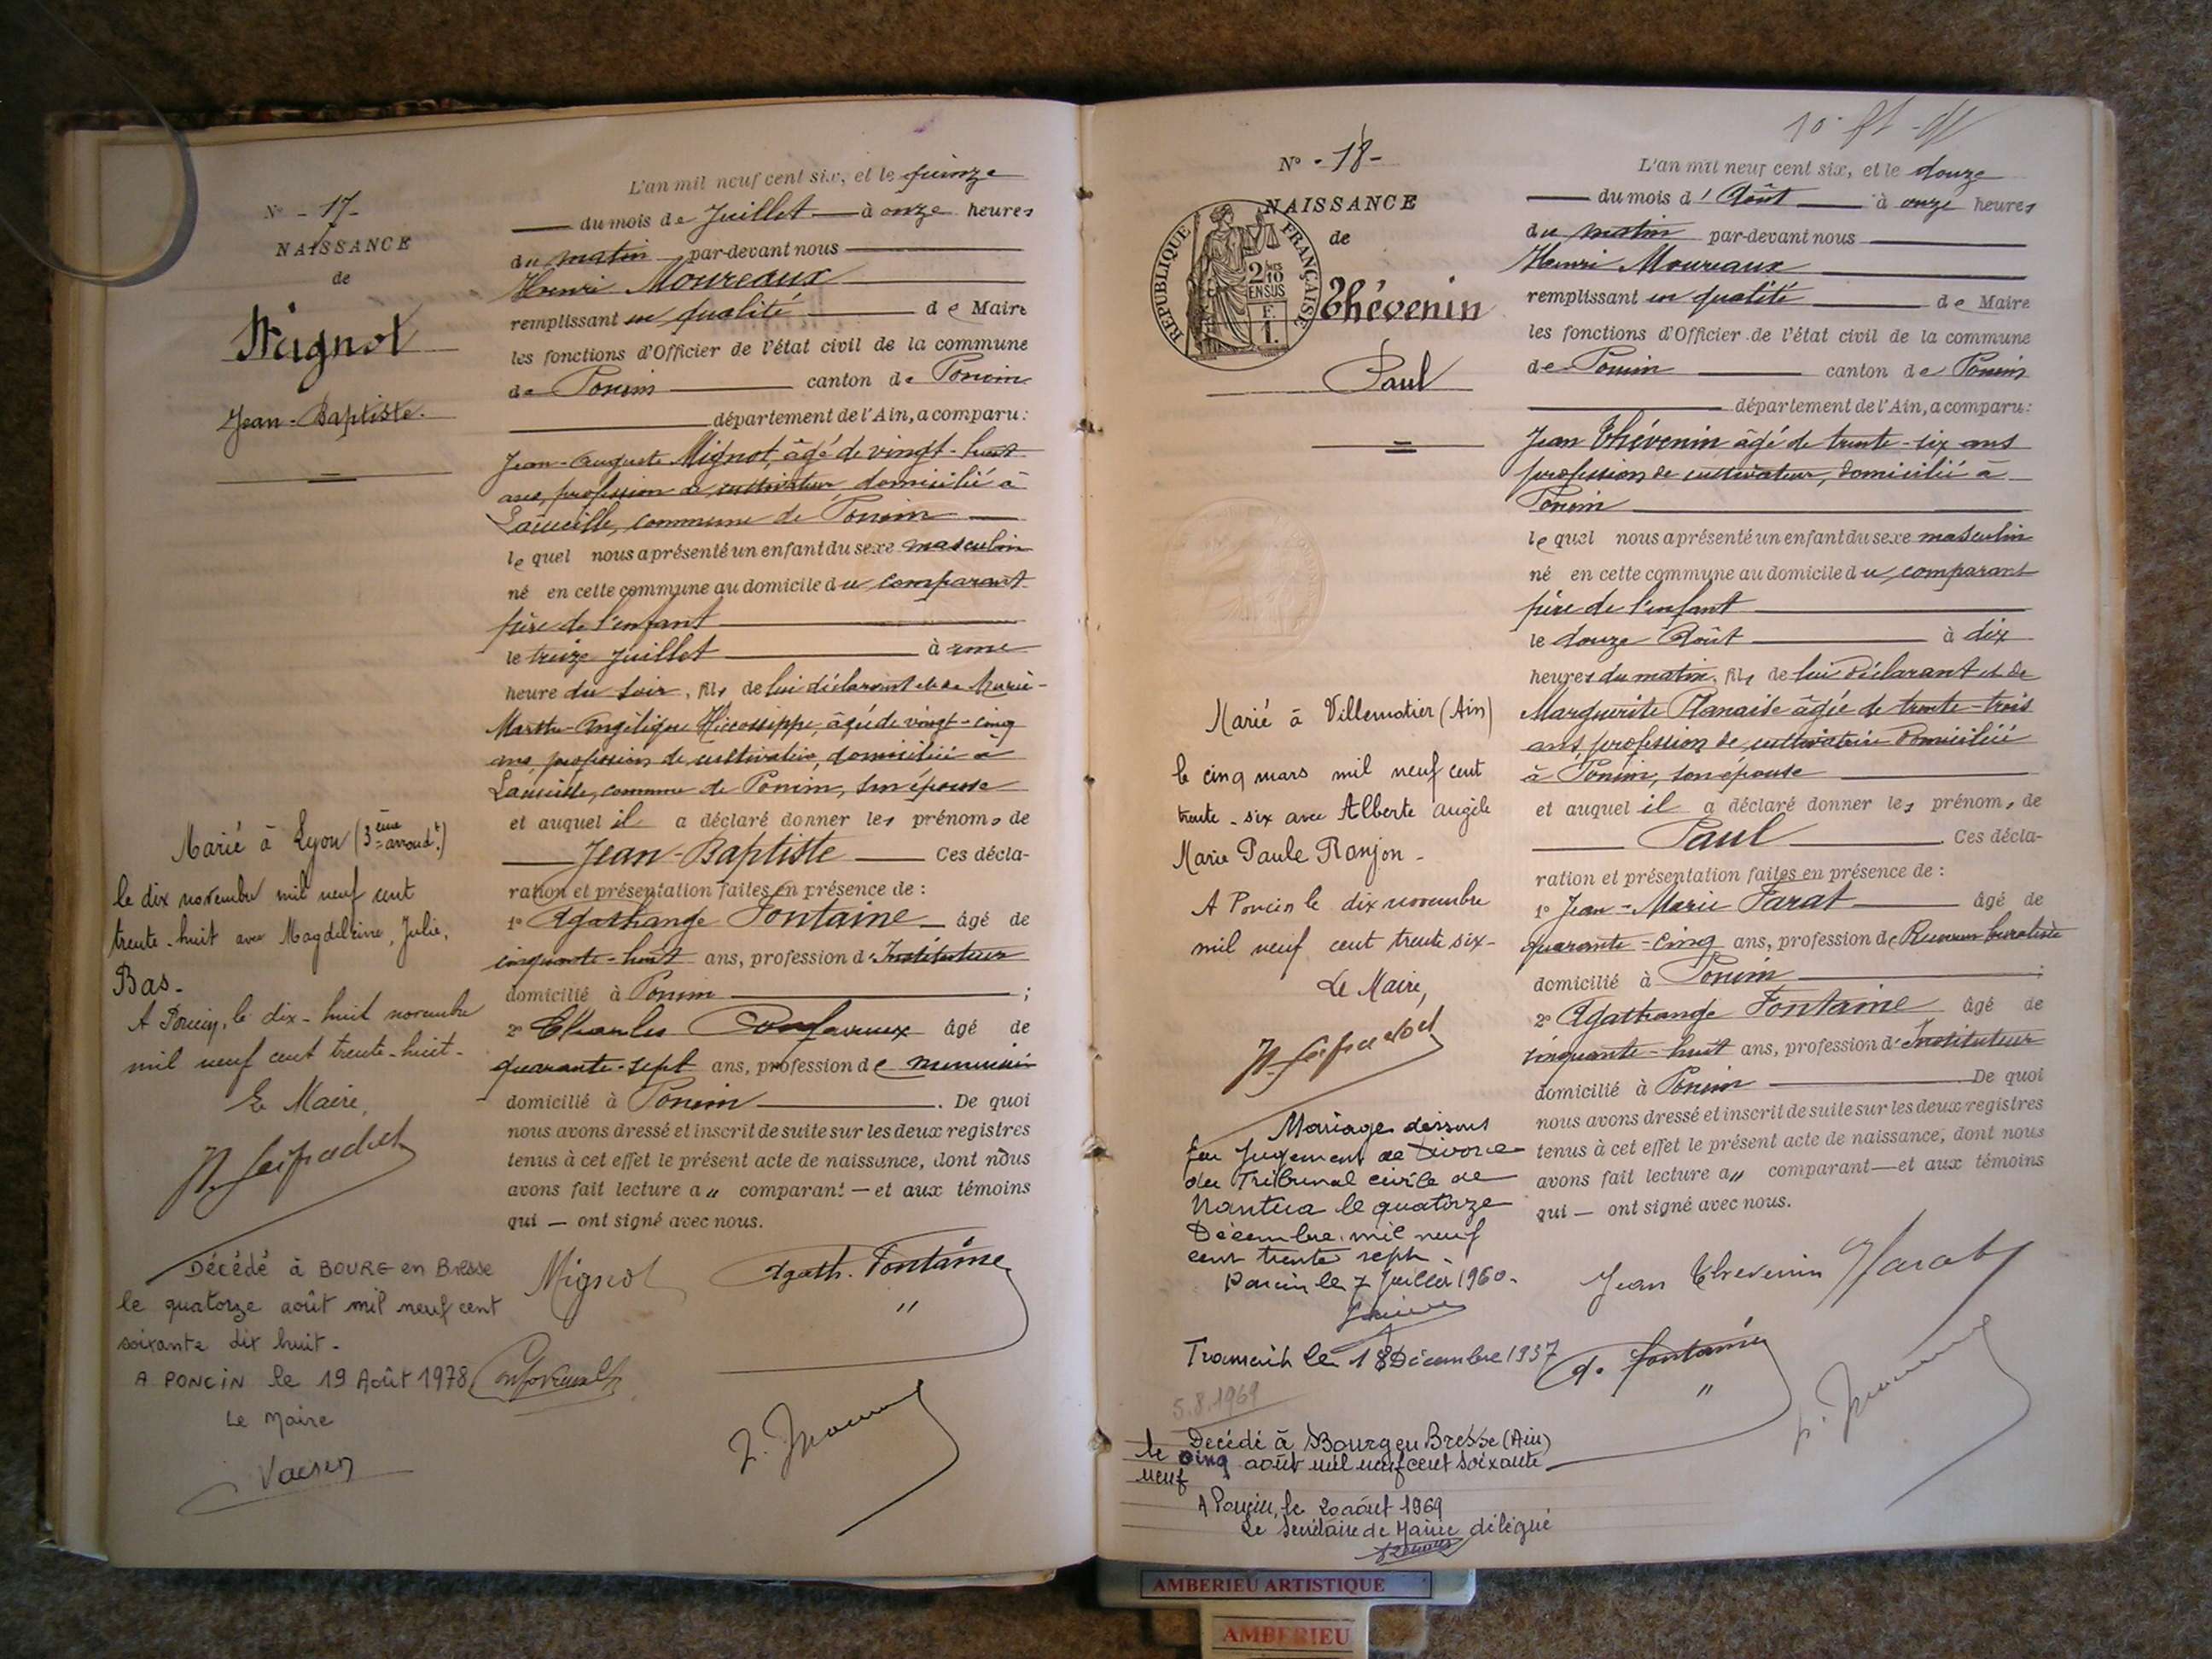 N° - 17-
NAISSANCE
de
Mignot
Jean-Baptiste.
L'an mil neuf cent six, et le quinze
du mois de Juillet à onze heures
du matin par-devant nous
Henri Moureaux
remplissant en qualité de Maire
les fonctions d'Officier de l'état civil de la commune
de Poncin canton de Poncin
département de l'Ain, a comparu:
Jean-Auguste Mignot, âgé de vingt-huit
ans, profession de cultivateur, domicilié à
commune de Poncin
lequel nous a présenté un enfant du sexe masculin
né en cette commune au domicile du comparant
père de l'enfant
le treize Juillet à une
heure du soir, fils de lui déclarant et de Marie-
Marthe-Angélique âgée de vingt-cinq
ans, profession de cultivatrice, domiciliée à
commune de Poncin, son épouse
et auquel il a déclaré donner les prénoms de
Jean-Baptiste Ces décla-
ration et présentation faites en présence de :
1° Agathange Fontaine âgé de
cinquante-huit ans, profession d'Instituteur
domicilié à Poncin ;
2° Charles Confavreux âgé de
quarante-sept ans, profession de menuisier
domicilié à Poncin . De quoi
nous avons dressé et inscrit de suite sur les deux registres
tenus à cet effet le présent acte de naissance, dont nous
avons fait lecture au comparant — et aux témoins
qui — ont signé avec nous.
Mignot Agath. Fontaine
Marié à Lyon (3ème arrondt.)
le dix novembre mil neuf cent
trente-huit avec Magdeleine, Julie,
Bas-
A Poncin, le dix-huit novembre
mil neuf cent trente-huit-
Le Maire,
Décédé à BOURG en Bresse
le quatorze août mil neuf cent
soixante dix huit-
A PONCIN le 19 Août 1978
Le Maire
N° - 18-
NAISSANCE
de
Thévenin
Paul
RÉPUBLIQUE FRANÇAISE
2/10 EN SUS
F.
1.
L'an mil neuf cent six, et le douze
du mois d'Août à onze heures
du matin par-devant nous
Henri Moureaux
remplissant en qualité de Maire
les fonctions d'Officier de l'état civil de la commune
de Poncin canton de Poncin
département de l'Ain, a comparu:
Jean Thévenin âgé de trente-six ans
profession de cultivateur, domicilié à
Poncin
lequel nous a présenté un enfant du sexe masculin
né en cette commune au domicile du comparant
père de l'enfant
le douze Août à dix
heures du matin, fils de lui déclarant et de
Marguerite Planaise âgée de trente-trois
ans, profession de cultivatrice domiciliée
à Poncin, son épouse
et auquel il a déclaré donner les prénoms de
Paul . Ces décla-
ration et présentation faites en présence de :
1° Jean-Marie Farat âgé de
quarante-cinq ans, profession de Receveur buraliste
domicilié à Poncin ;
2° Agathange Fontaine âgé de
cinquante-huit ans, profession d'Instituteur
domicilié à Poncin De quoi
nous avons dressé et inscrit de suite sur les deux registres
tenus à cet effet le présent acte de naissance, dont nous
avons fait lecture au comparant — et aux témoins
qui — ont signé avec nous.
Jean Thevenin Farat
A. Fontaine
Marié à Villemotier (Ain)
le cinq mars mil neuf cent
trente-six avec Alberte Angèle
Marie Paule Ranjon-
A Poncin le dix novembre
mil neuf cent trente six-
Le Maire,
Mariage dissous
par Jugement de Divorce
du Tribunal civil de
Nantua le quatorze
Décembre mil neuf
cent trente sept.
Poncin le 7 Juillet 1960.
Transcrit le 18 Décembre 1937
5.8.1969
Decédé à Bourg en Bresse (Ain)
le cinq août mil neuf cent soixante
neuf
A Poncin, le 20 août 1969
Le Secrétaire de Mairie délégué
AMBERIEU ARTISTIQUE
AMBERIEU